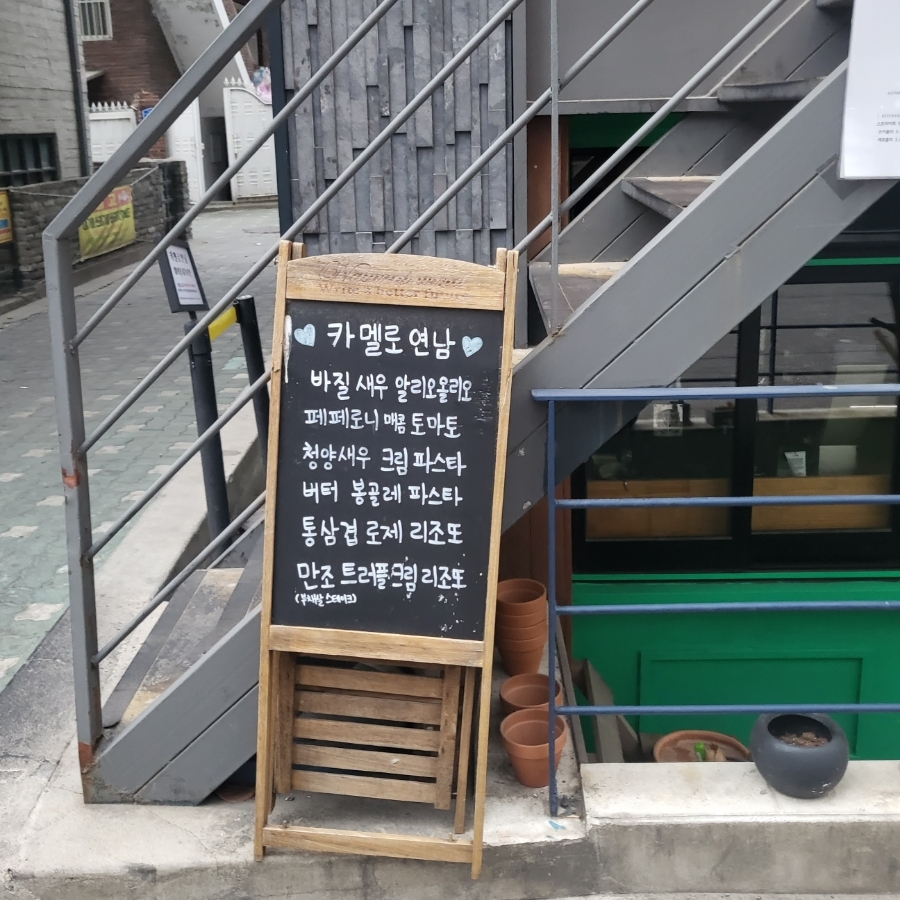 카멜로 연남
바질 새우 알리오올리오
페페로니 매콤 토마토
청양새우 크림 파스타
버터 봉골레 파스타
통삼겹 로제 리조또
만조 트러플크림 리조또
(부채살 스테이크)